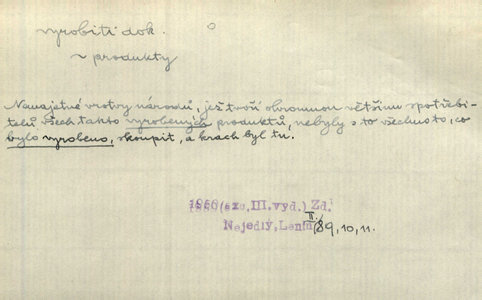 vyrobiti dok.
~ produkty
Nemajetné vrstvy národů, jež tvoří ohromnou většinu spotřebi-
telů všech takto vyrobených produktů, nebyly s to všechno to, co
bylo vyrobeno, skoupit, a krach byl tu.
III. vyd.) Zd.
Nejedlý, Lenin II/89, 10, 11.